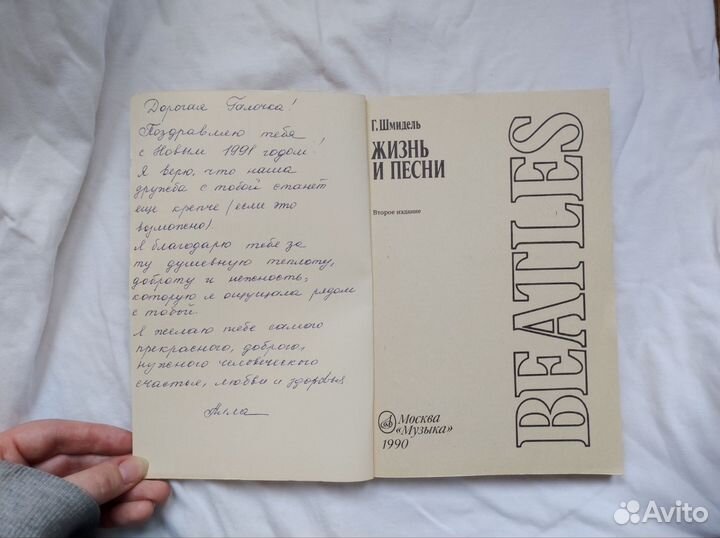 Дорогая Галочка!
Поздравляю тебя
с Новым 1991 годом!
Я верю, что наша
дружба с тобой станет
еще крепче (если это
возможно).
Я благодарю тебя за
ту душевную теплоту,
доброту и нежность,
которую я ощущала рядом
с тобой.
Я желаю тебе самого
прекрасного, доброго,
нужного человеческого
счастья, любви и здоровья
Алла
Г. Шмидель
ЖИЗНЬ
И ПЕСНИ
Второе издание
BEATLES
Москва
«Музыка»
1990
Avito